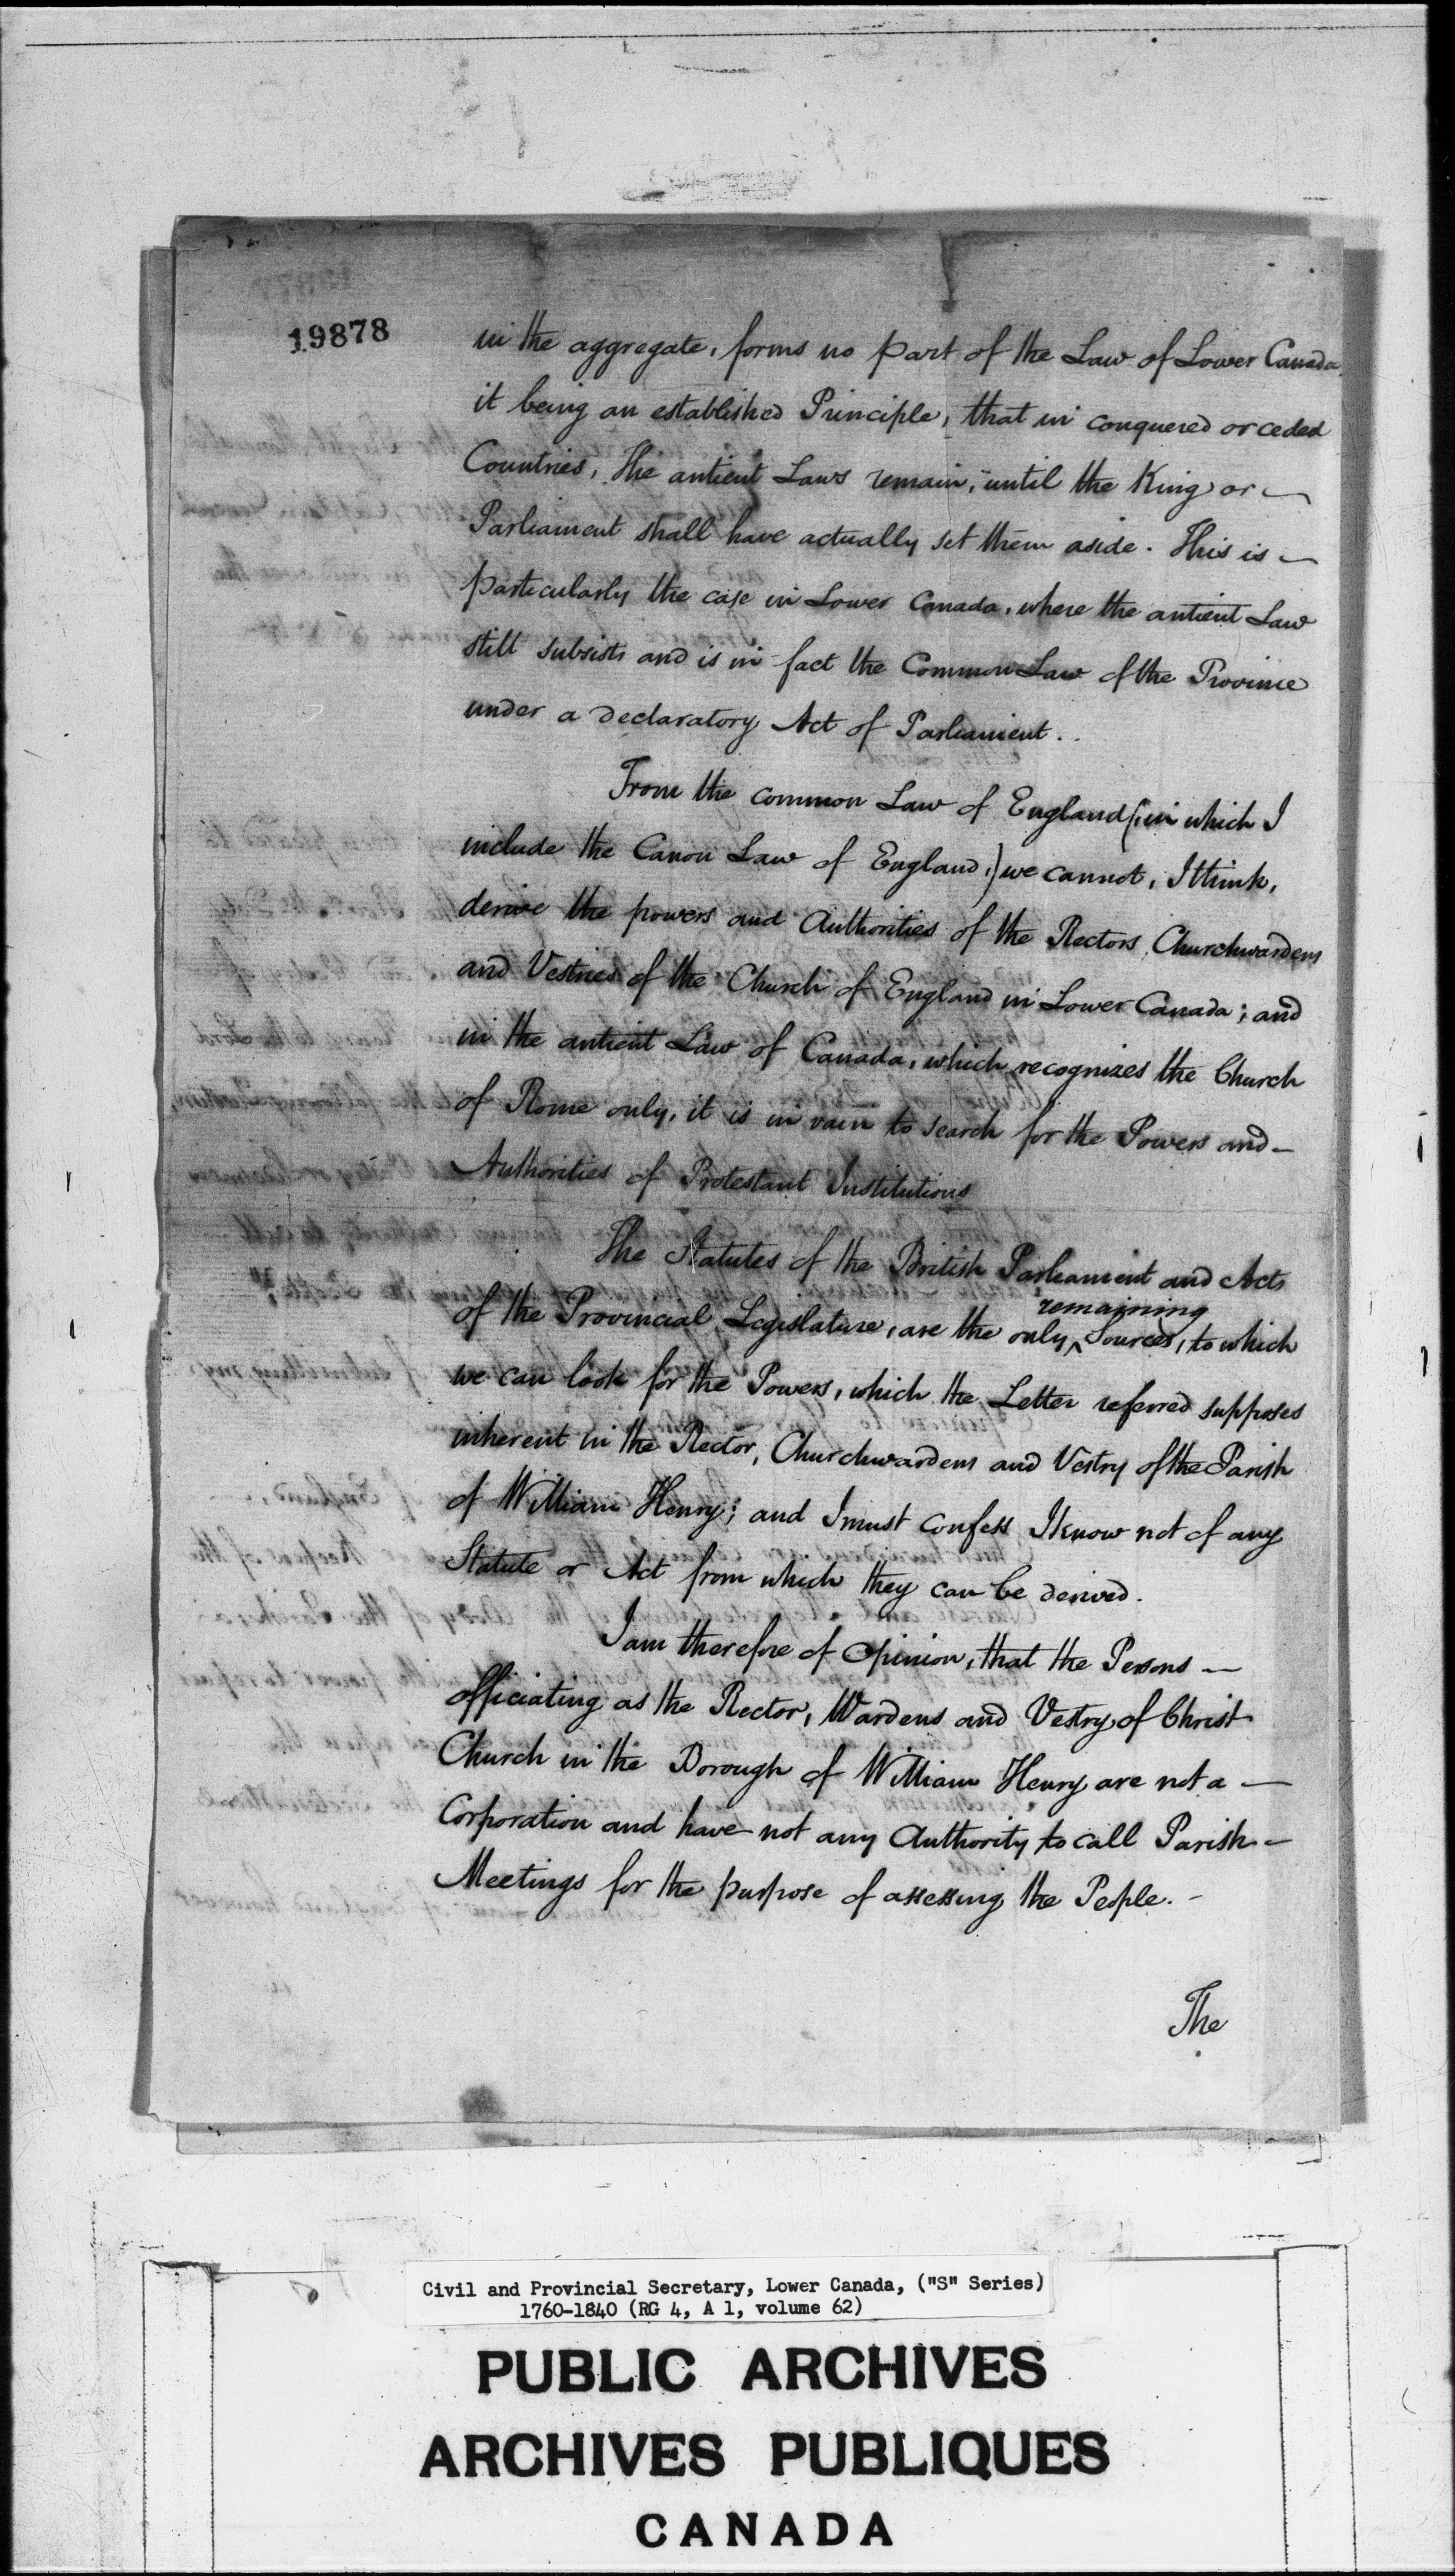 19878
in the aggregate, forms no part of the Law of Lower Canada,
it being an established Principle, that in conquered or ceded
Countries, the antient Laws remain, until the King or —
Parliament shall have actually set them aside. This is —
particularly the case in Lower Canada, where the antient Law
still subsists and is in fact the Common Law of the Province
under a declaratory Act of Parliament..
From the common Law of England (in which I
include the Canon Law of England,) we cannot, I think,
derive the powers and Authorities of the Rectors, Churchwardens
and Vestries of the Church of England in Lower Canada; and
in the antient Law of Canada, which recognizes the Church
of Rome only, it is in vain to search for the Powers and —
Authorities of Protestant Institutions
The Statutes of the British Parliament and Acts
remaining
of the Provincial Legislature, are the only ^ Sources, to which
we can look for the Powers, which the Letter referred supposes
inherent in the Rector, Churchwardens and Vestry of the Parish
of William Henry; and I must confess I know not of any
Statute or Act from which they can be derived.
I am therefore of Opinion, that the Persons —
officiating as the Rector, Wardens and Vestry of Christ
Church in the Borough of William Henry are not a —
Corporation and have not any Authority to call Parish —
Meetings for the purpose of assessing the People. -
The
Civil and Provincial Secretary, Lower Canada, ("S" Series)
1760-1840 (RG 4, A 1, volume 62)
PUBLIC ARCHIVES
ARCHIVES PUBLIQUES
CANADA